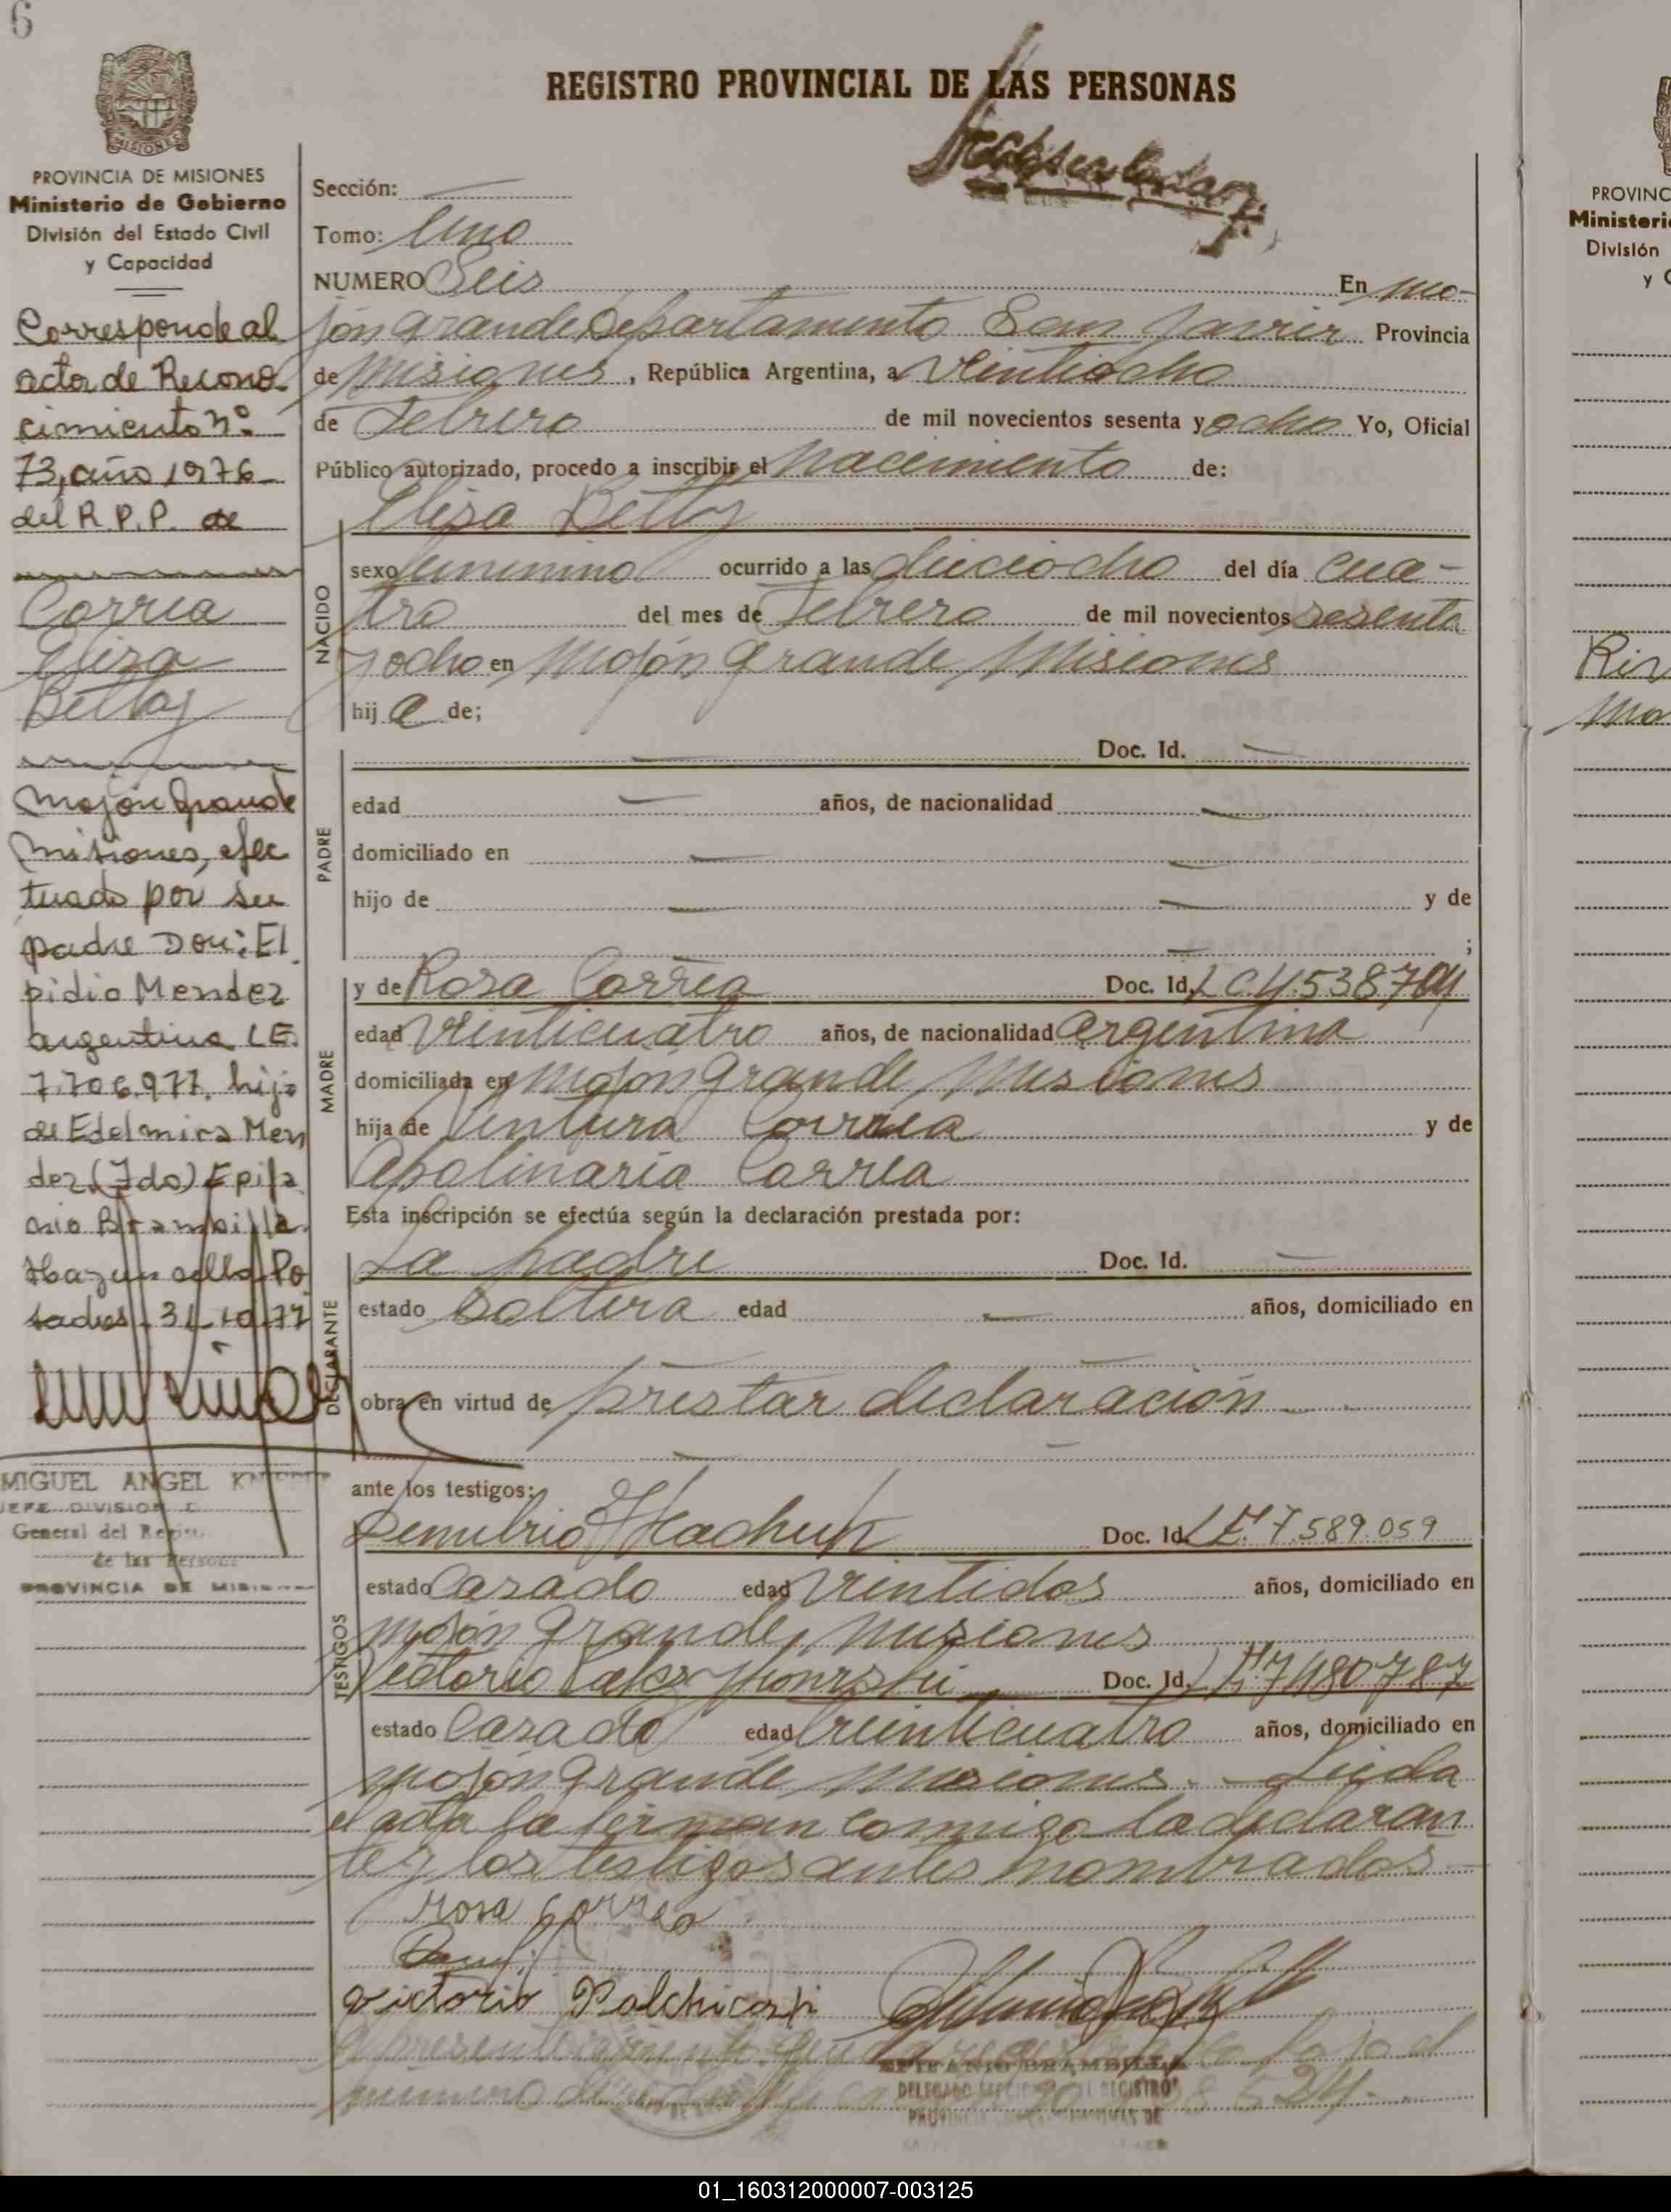 6
REGISTRO PROVINCIAL DE LAS PERSONAS
PROVINCIA DE MISIONES
Ministerio de Gobierno
División del Estado Civil
y Capacidad
Corresponde al
acta de Recono
cimiento nº
73, año 1976
del R.P.P. de
Correa
Elisa
Betty
Mojón Grande
Misiones, efec
tuado por su
padre Don: El
pidio Mendez
argentino L.E.
7.706.977. hijo
de Edelmira Men
dez. (Fdo) Epifa
nio Brambilla
Hay un sello Po
sadas, 31-10-77
MIGUEL ANGEL
JEFE DIVISION
General del
de las
PROVINCIA DE
Sección:
Tomo: Uno
NUMERO Seis En Mo-
jón Grande Departamento San Javier Provincia
de Misiones, República Argentina, a Veintiocho
de Febrero de mil novecientos sesenta y ocho Yo, Oficial
Público autorizado, procedo a inscribir el Nacimiento de:
Elisa Betty
NACIDO
sexo femenino ocurrido a las dieciocho del día Cua-
tro del mes de Febrero de mil novecientos sesenta
y ocho en Mojón Grande Misiones
hij a de;
PADRE
Doc. Id.
edad años, de nacionalidad
domiciliado en
hijo de y de
;
MADRE
y de Rosa Correa Doc. Id. L.C. 4.538.704
edad Veinticuatro años, de nacionalidad Argentina
domiciliada en Mojón Grande, Misiones
hija de Ventura Correa y de
Apolinaria Correa
Esta inscripción se efectúa según la declaración prestada por:
DECLARANTE
La padre Doc. Id.
estado Soltera edad años, domiciliado en
obra en virtud de prestar declaración
ante los testigos:
TESTIGOS
Demetrio Doc. Id. L.E. 7.589.059
estado Casado edad Veintidos años, domiciliado en
Mojón Grande, Misiones
Victorio Doc. Id. L.E. 7480787
estado Casado edad Veinticuatro años, domiciliado en
Mojón Grande Misiones. Leida
el acta la firman conmigo la declaran
te y los testigos antes nombrados
rosa correa
Victorio
EPIFANIO BRAMBILLA
DELEGADO REGISTRO
PROVINCIAL DE
01_160312000007-003125
PROVINC
Ministeri
División
y C
Riv
Mo